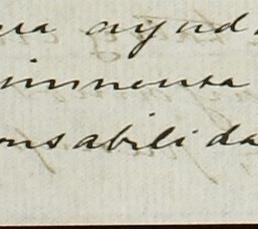 ua ayud
inmensa
onsabilida